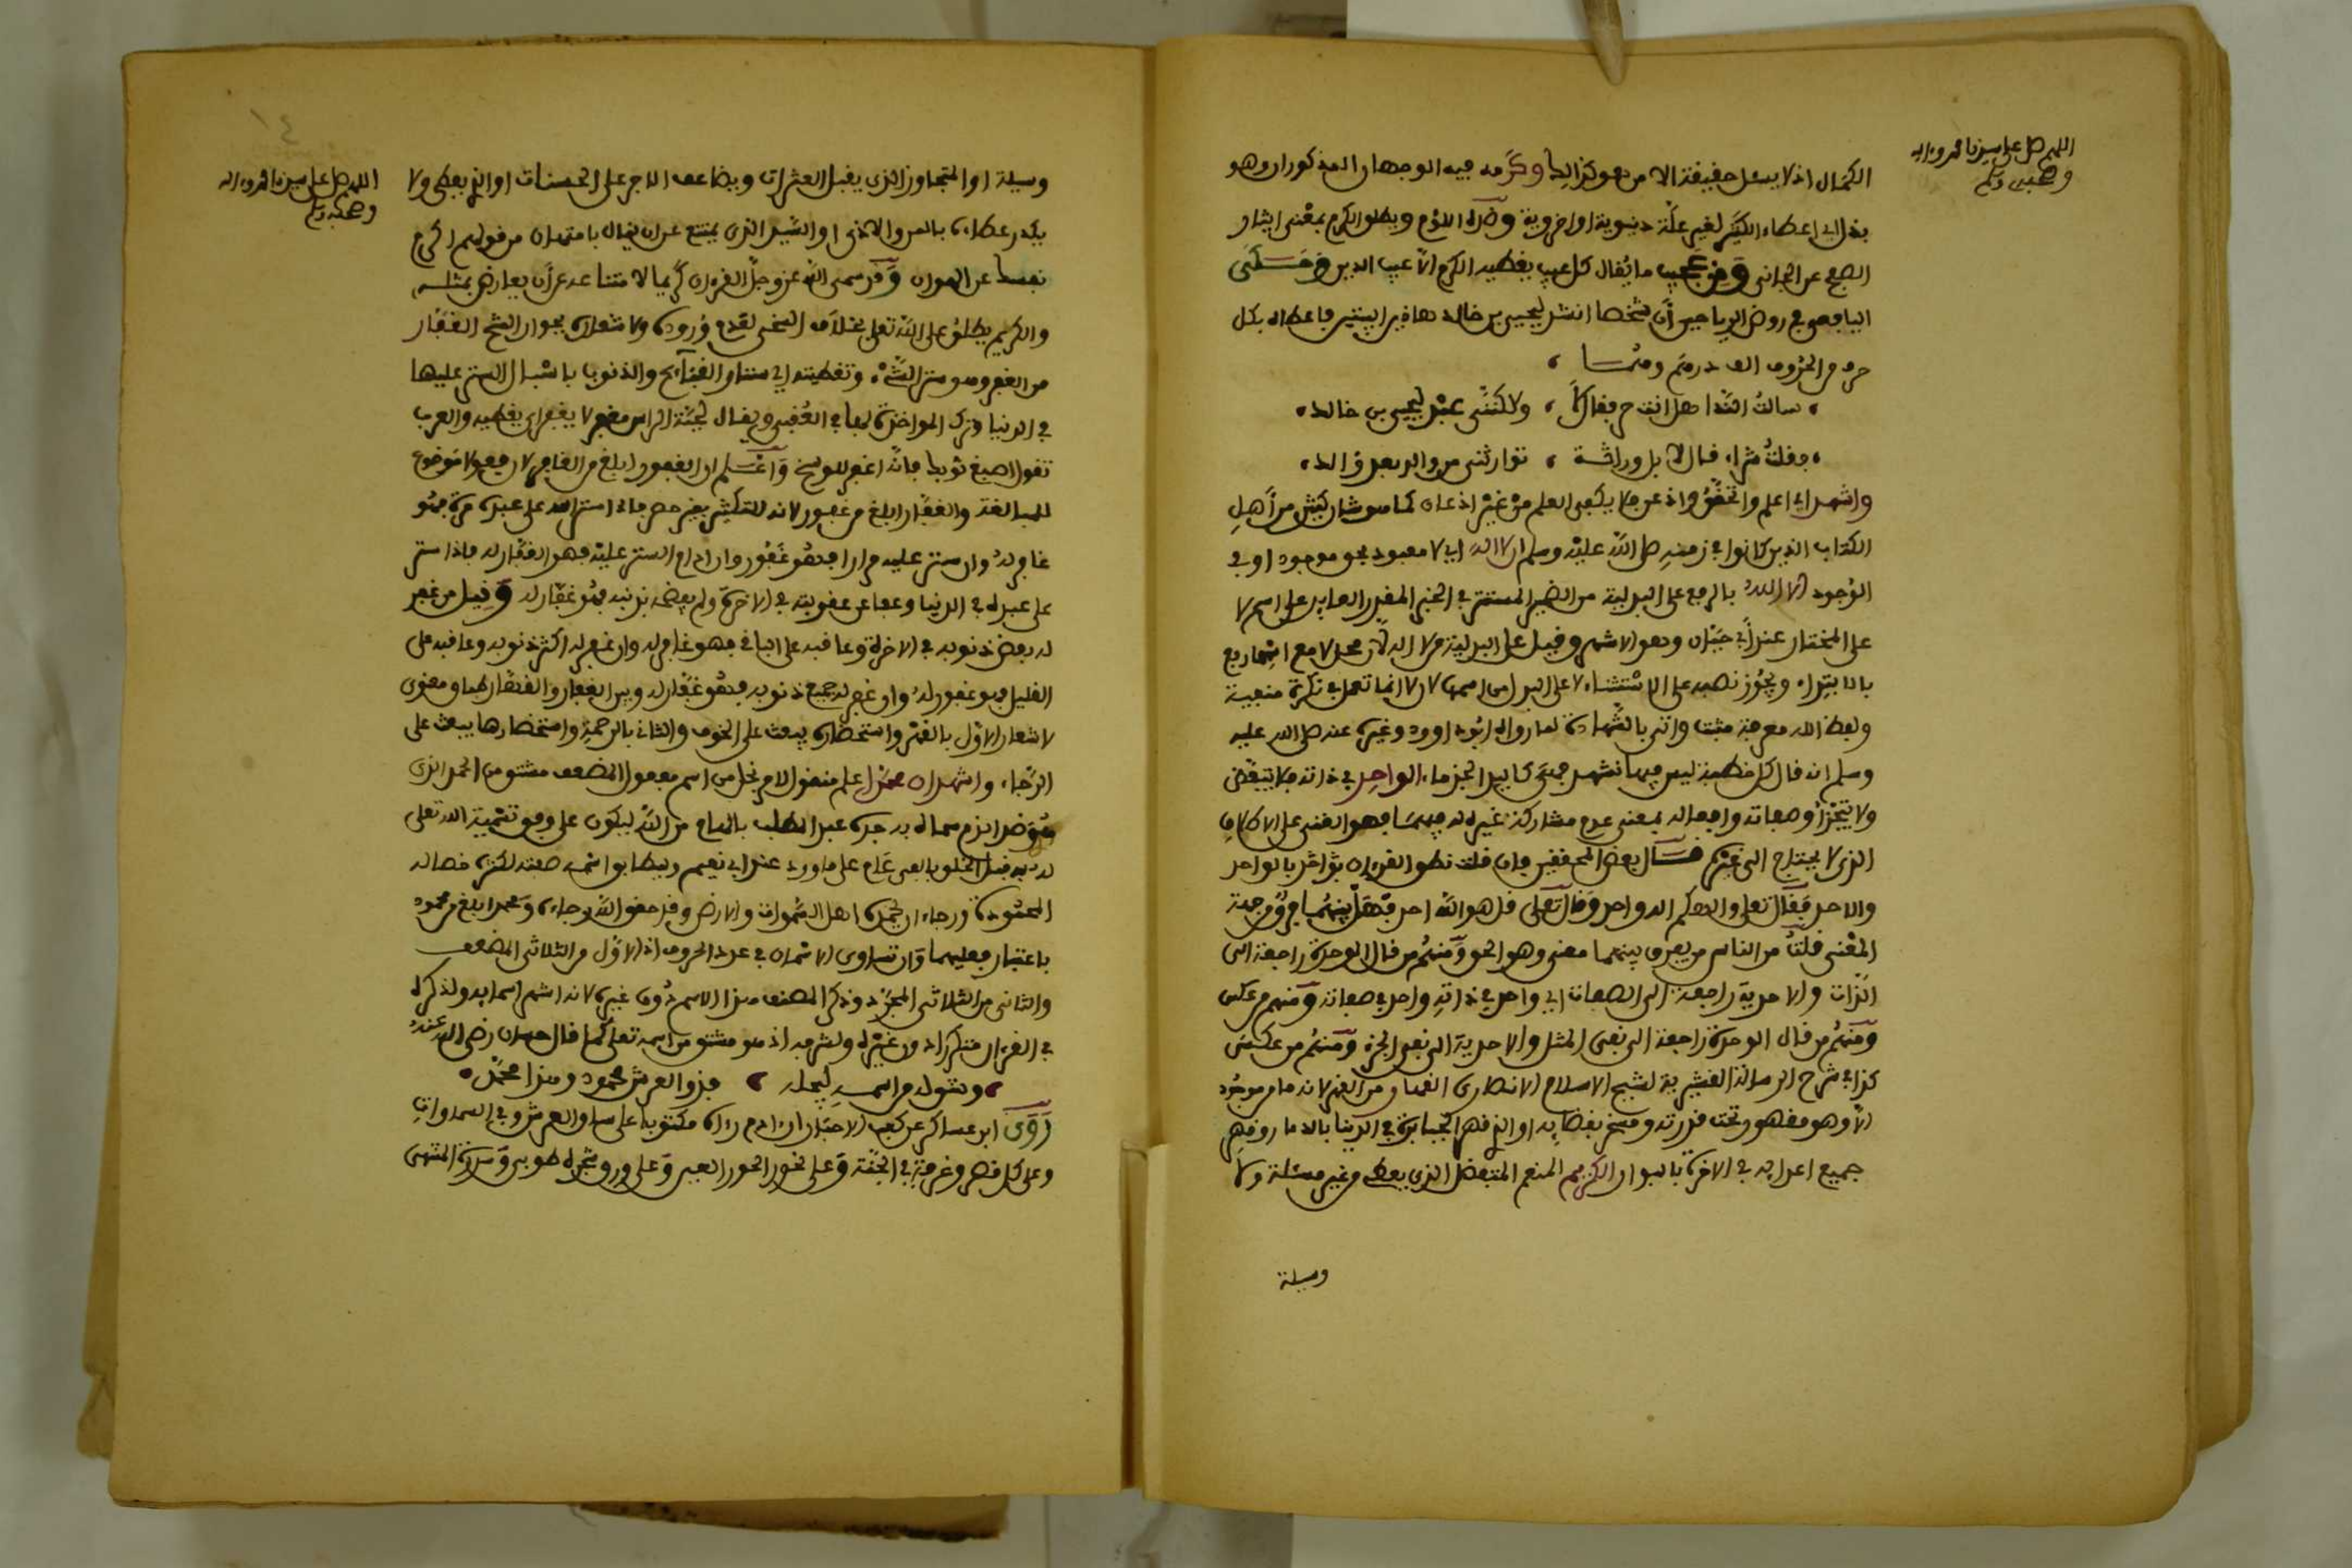 اللهم صل على سيدنا محمد وءاله
وصحبه وسلم
الكمال اذ لا يسئل حقيقة الا من هو كذالك وكرمه فيه الوجهان المذكوران وهو
اعطاء الكثير لغير علة دنيوية او اخروية وضده اللؤم ويطلق الكرم بمعنى ايثار
الصفح عن الجانى ومن عجيب ما يقال كل عيب يغطيه الكرم الا عيب الدين وحكى
اليافعى في روض الرياحين أن شخصا انشد ليحيى بن خالد هاذين البيتين فاعطاه بكل
حرف من الحروف الف درهم وهما
سالت الندا هل انت حر فقال لا ولاكننى عبد ليحيى بن خالد
فقلت شراء قال لا بل وراثة توارثنى من والد بعد والد
واشهد اي اعلم واتحقق واذعن فلا يكفى العلم من غير اذعان كما هو شان كثير من أهل
الكتاب الذين كانوا في زمنه صلى الله عليه وسلم ان لا اله اي لا معبود بحق موجود او في
الوجود الا الله بالرفع على البدلية من الضمير المستتر في الخبر المقدر العايد على اسم لا
على المختار عند أبي حيان وهو الاشهر وقيل على البدلية من لا اله لان محل لا مع اسمها رفع
بالابتداء ويجوز نصبه على الاستثناء لا على البدل من اسمها لان لا انما تعمل في نكرة منفية
ولفظ الله معرفة مثبت واتى بالشهادة لما رواه ابو داوود وغيره عنه صلى الله عليه
وسلم انه قال كل خطبة ليس فيها تشهد فهى كاليد الجذماء الواحد في ذاته فلا يتبعض
ولا يتجزأ وصفاته وافعاله بمعنى عدم مشاركة غيره له فيهما فهو الغنى على الاطلاق
الذى لا يحتاج الى غيره قال بعض المحققين فان قلت نطق القرءان بالواحد
والاحد فقال تعلى والاهكم اله واحد وقال تعلى قل هو الله احد فهل بينهما فرق من جهة
المعنى قلت من الناس من يفرق بينهما معنى وهو الحق ومنهم من قال الوحدة راجعة الى
الذات والاحدية راجعة الى الصفات اي واحد في ذاته واحد في صفاته ومنهم من عكس
ومنهم من قال الوحدة راجعة الى نفى المثل والاحدية الى نفى الجزء ومنهم من عكس
كذا في شرح الرسالة القشيرية لشيخ الاسلام الانصارى القهار من القهر لانه ما من موجود
الا وهو مقهور تحت قدرته ومسخر بقضايه او الذى قهر الجبابرة في الدنيا
جميع اعدايه في الاخرة بالبوار الكريم المنعم المتفضل الذى يعطى من غير مسئلة ولا
وسيلة
١٤
اللهم صل على سيدنا محمد وءاله
وصحبه وسلم
وسيلة او المتجاوز الذى يقبل العثرات ويضاعف الاجر على الحسنات او الذى يعطى ولا
يكدر عطاءه بالمن والاذى او السيد الذى يمتنع عن ان ينال بامتهان من قولهم اكرم
نفسك عن الهوان وقد سمى الله عز وجل القرءان كريما لامتناعه عن أن يعارض بمثله
والكريم يطلق على الله تعلى بخلاف السخى لعدم وروده ولاشعاره بجواز الشح الغفار
من الغفر وهو ستر الشيء وتغطيته اي ستار القبايح والذنوب باسبال الستر عليها
في الدنيا وترك المواخذة بها في العقبى ويقال لجنة الراس مغفر لانه يغفر اي يغطيه والعرب
تقول اصبغ ثوبك فانه اغفر للوسخ واعلم ان الغفور ابلغ من الغافر لان فعولا موضوع
للمبالغة والغفار ابلغ من غفور لانه للتكثير بغير حصر فاذا ستر الله على عبده مرة فهو
غافر له وان ستر عليه مرارا فهو غفور وان ادام الستر عليه فهو الغفار له فاذا ستر
على عبده في الدنيا وعفا عن عقوبته في الاخرة ولم يفضحه بذنبه فهو غفار له وقيل من غفر
له بعض ذنوبه في الاخرة وعاقبه على الباقى فهو غافر له وان غفر له اكثر ذنوبه وعاقبه على
القليل فهو غفور له وان غفر له جميع ذنوبه فهو غفار له وبين الغفار والقهار طباق معنوى
لاشعار الاول بالقهر واستحضاره يبعث على الخوف والثانى بالرحمة واستحضارها يبعث على
الرجاء واشهد ان محمدا علم منقول لا مرتجل من اسم مفعول المضعف مشتق من الحمد الذى
سماه به جده عبد المطلب بالهام من الله ليكون على وفق تسمية الله تعلى
له به قبل الخلق بالفى عام على ما ورد عند ابي نعيم وليطابق اسمه صفته لكثرة خصاله
المحمودة ورجاء ان يحمده اهل السموات والارض وقد حقق الله رجاءه ومحمد ابلغ من محمود
باعتبار فعليهما وان تساوى الاسمان في عدد الحروف اذ الاول من الثلاثى المضعف
والثانى من الثلاثى المجرد وذكر المصنف هذا الاسم دون غيره لانه اشهر اسمايه ولذكره
في القرءان متكررا دون غيره ولشرفه اذ هو مشتق من اسمه تعلى كما قال حسان رضى الله عنه
وشق له من اسمه ليجله فذو العرش محمود وهذا محمد
روى ابن عساكر عن كعب الاحبار ان ءادم رءاه مكتوبا على ساق العرش وفي السموات
وعلى كل قصر وغرفة في الجنة وعلى نحور الحور العين وعلى ورق شجرة طوبى وسدرة المنتهى